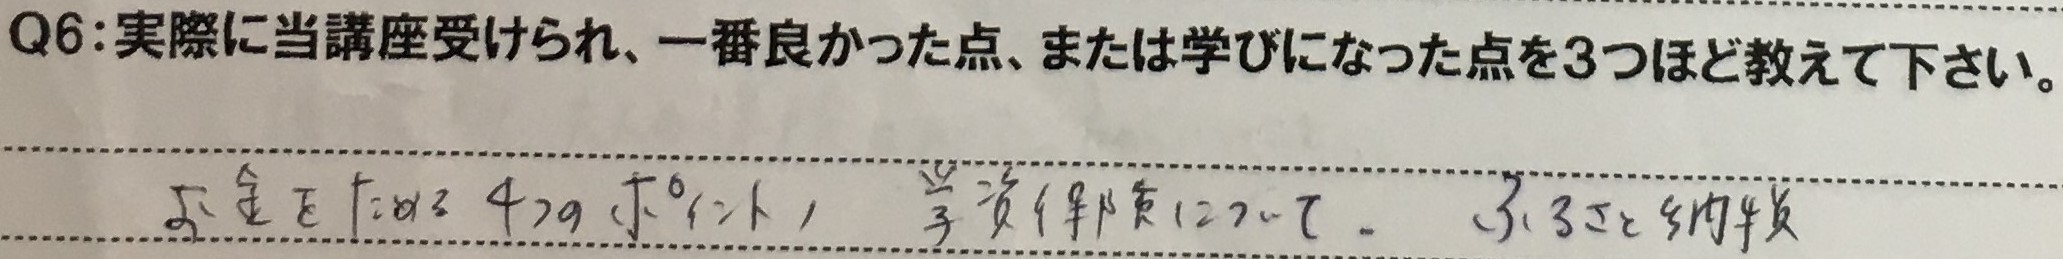 Q6:実際に当講座受けられ、一番良かった点、または学びになった点を3つほど教えて下さい。
お金をためる4つのポイント、 学資保険について。 ふるさと納税